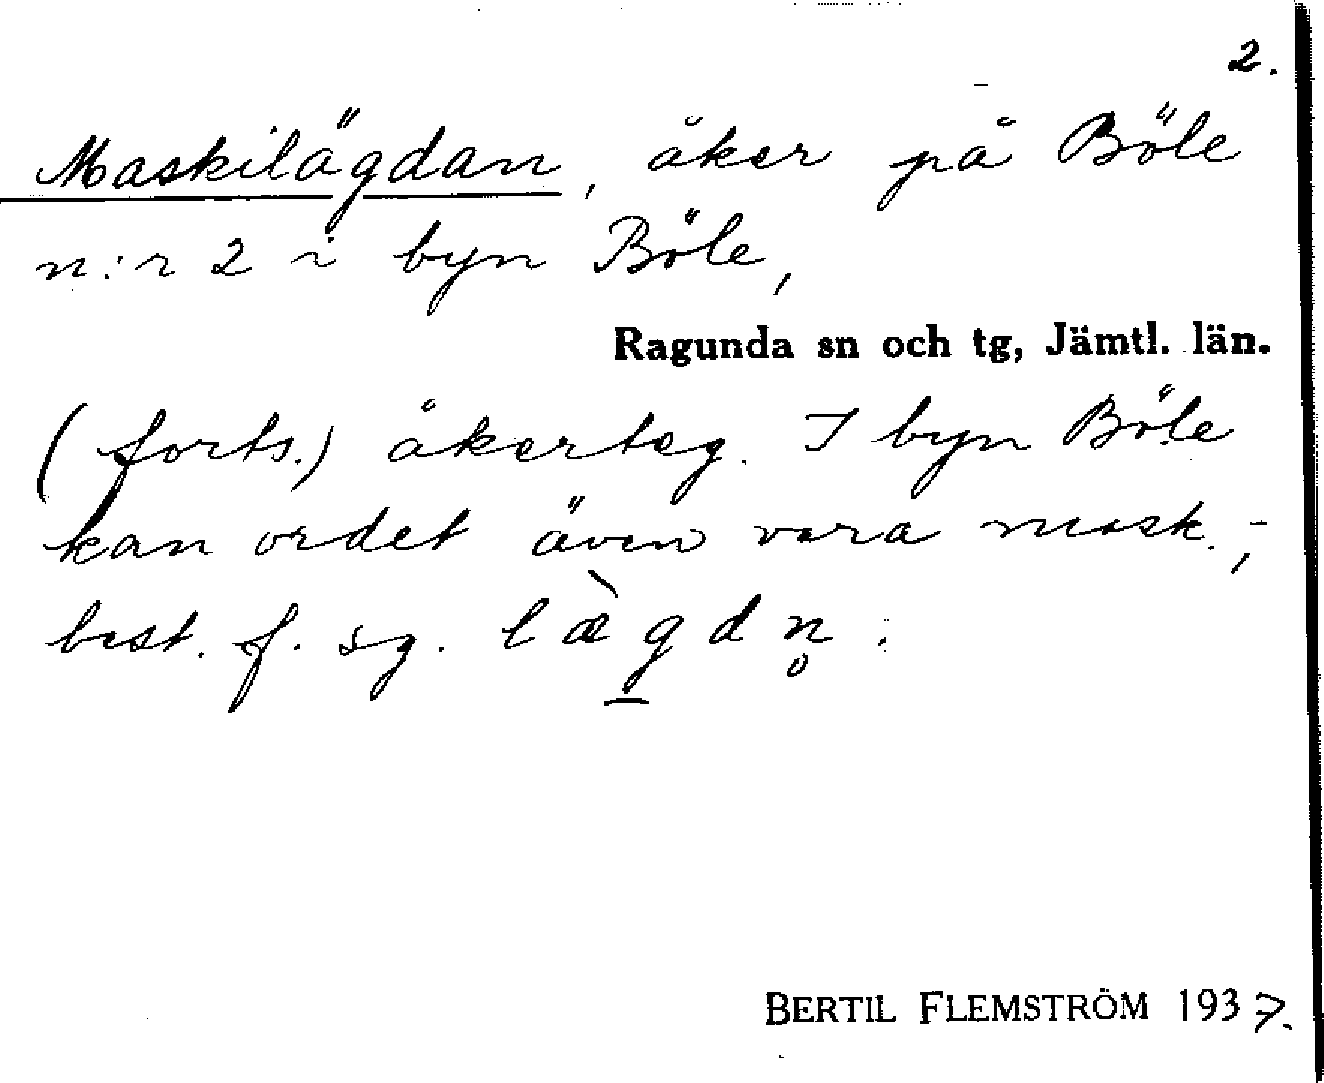 2.
Maskilägdan, åker på Böle
n:r 2 i byn Böle,
Ragunda sn och tg, Jämtl. län.
(forts.) åkerteg. I byn Böle
kan ordet även vara mask.;
best. f. sg. læ̀gdn̥.
BERTIL FLEMSTRÖM 1937.